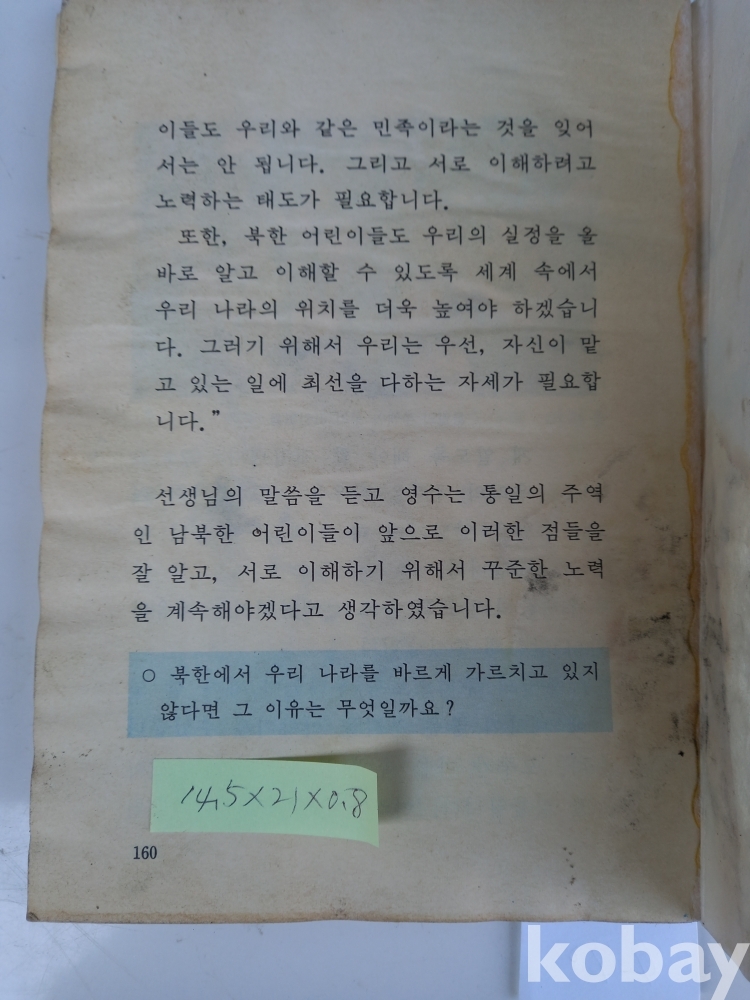 이들도 우리와 같은 민족이라는 것을 잊어
서는 안 됩니다. 그리고 서로 이해하려고
노력하는 태도가 필요합니다.
또한, 북한 어린이들도 우리의 실정을 올
바로 알고 이해할 수 있도록 세계 속에서
우리 나라의 위치를 더욱 높여야 하겠습니
다. 그러기 위해서 우리는 우선, 자신이 맡
고 있는 일에 최선을 다하는 자세가 필요합
니다.”
선생님의 말씀을 듣고 영수는 통일의 주역
인 남북한 어린이들이 앞으로 이러한 점들을
잘 알고, 서로 이해하기 위해서 꾸준한 노력
을 계속해야겠다고 생각하였습니다.
○ 북한에서 우리 나라를 바르게 가르치고 있지
않다면 그 이유는 무엇일까요?
14.5×21×0.8
160
kobay